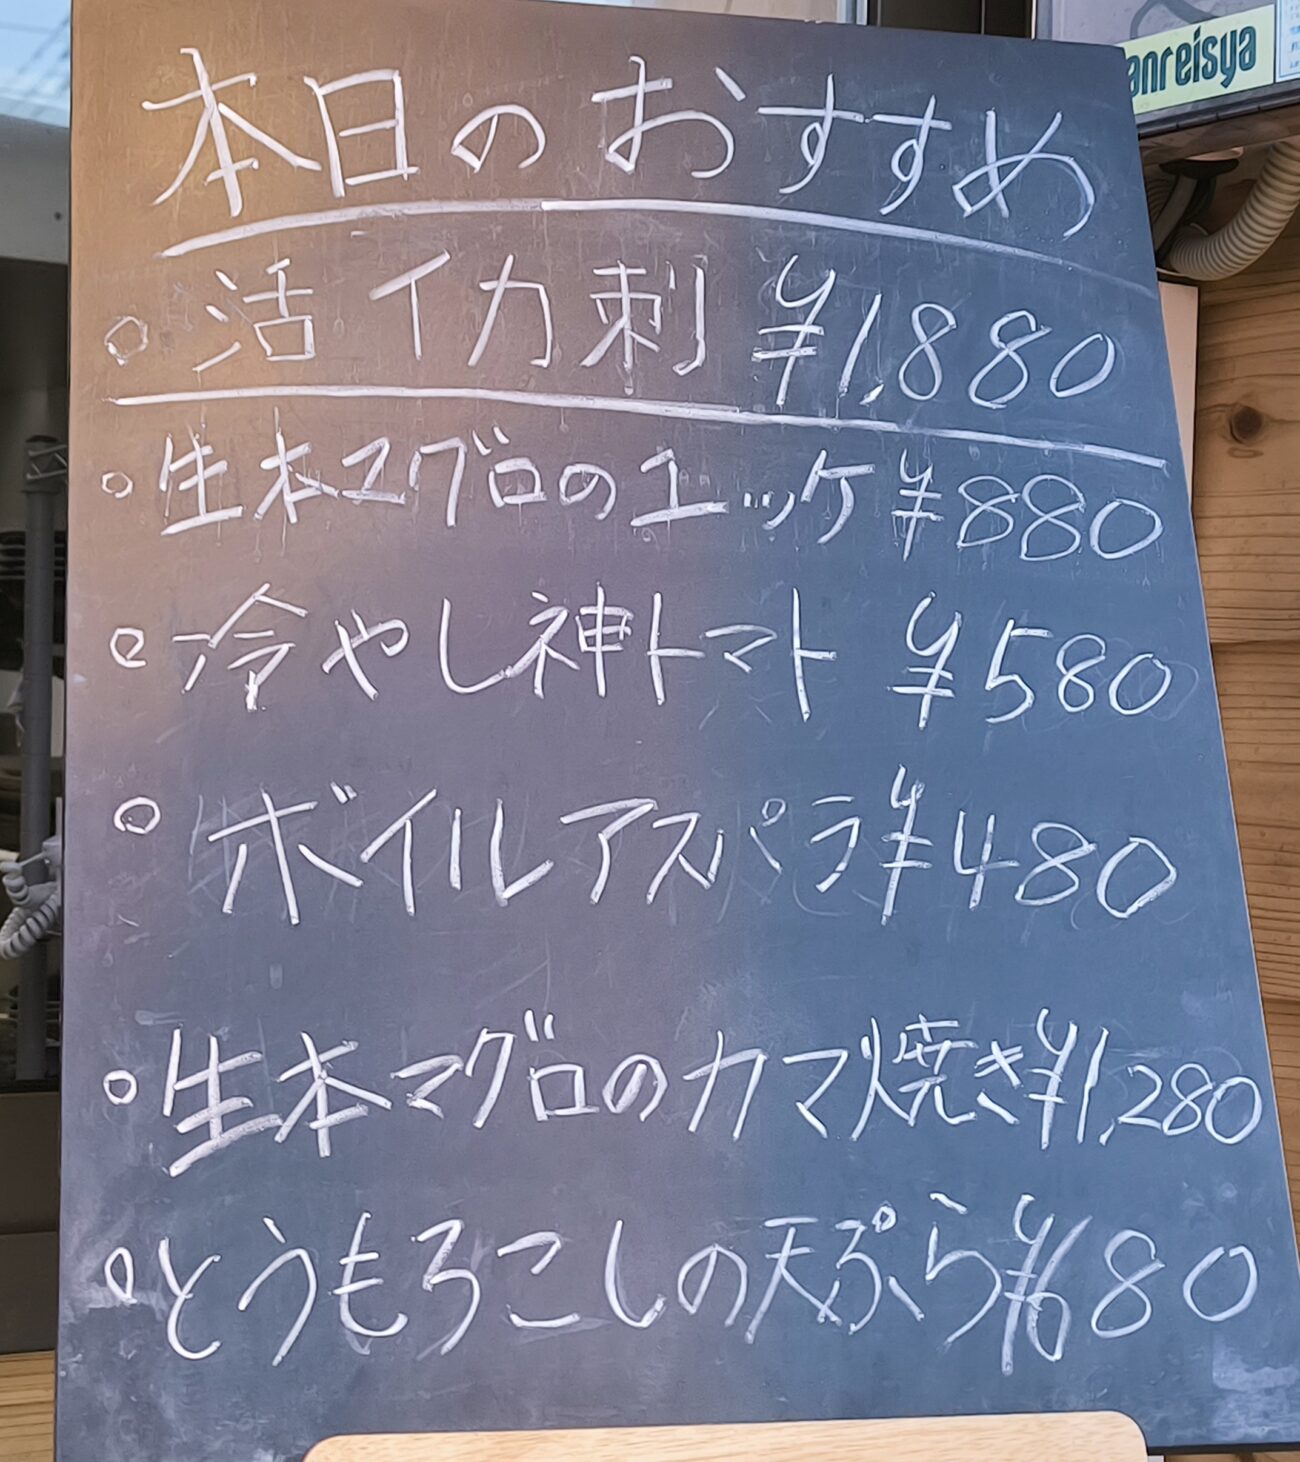 本日のおすすめ
anreisya
○活イカ刺 ¥1,880
○生本マグロのユッケ ¥880
○冷やし神トマト ¥580
○ボイルアスパラ ¥480
○生本マグロのカマ焼き ¥1,280
○とうもろこしの天ぷら ¥680